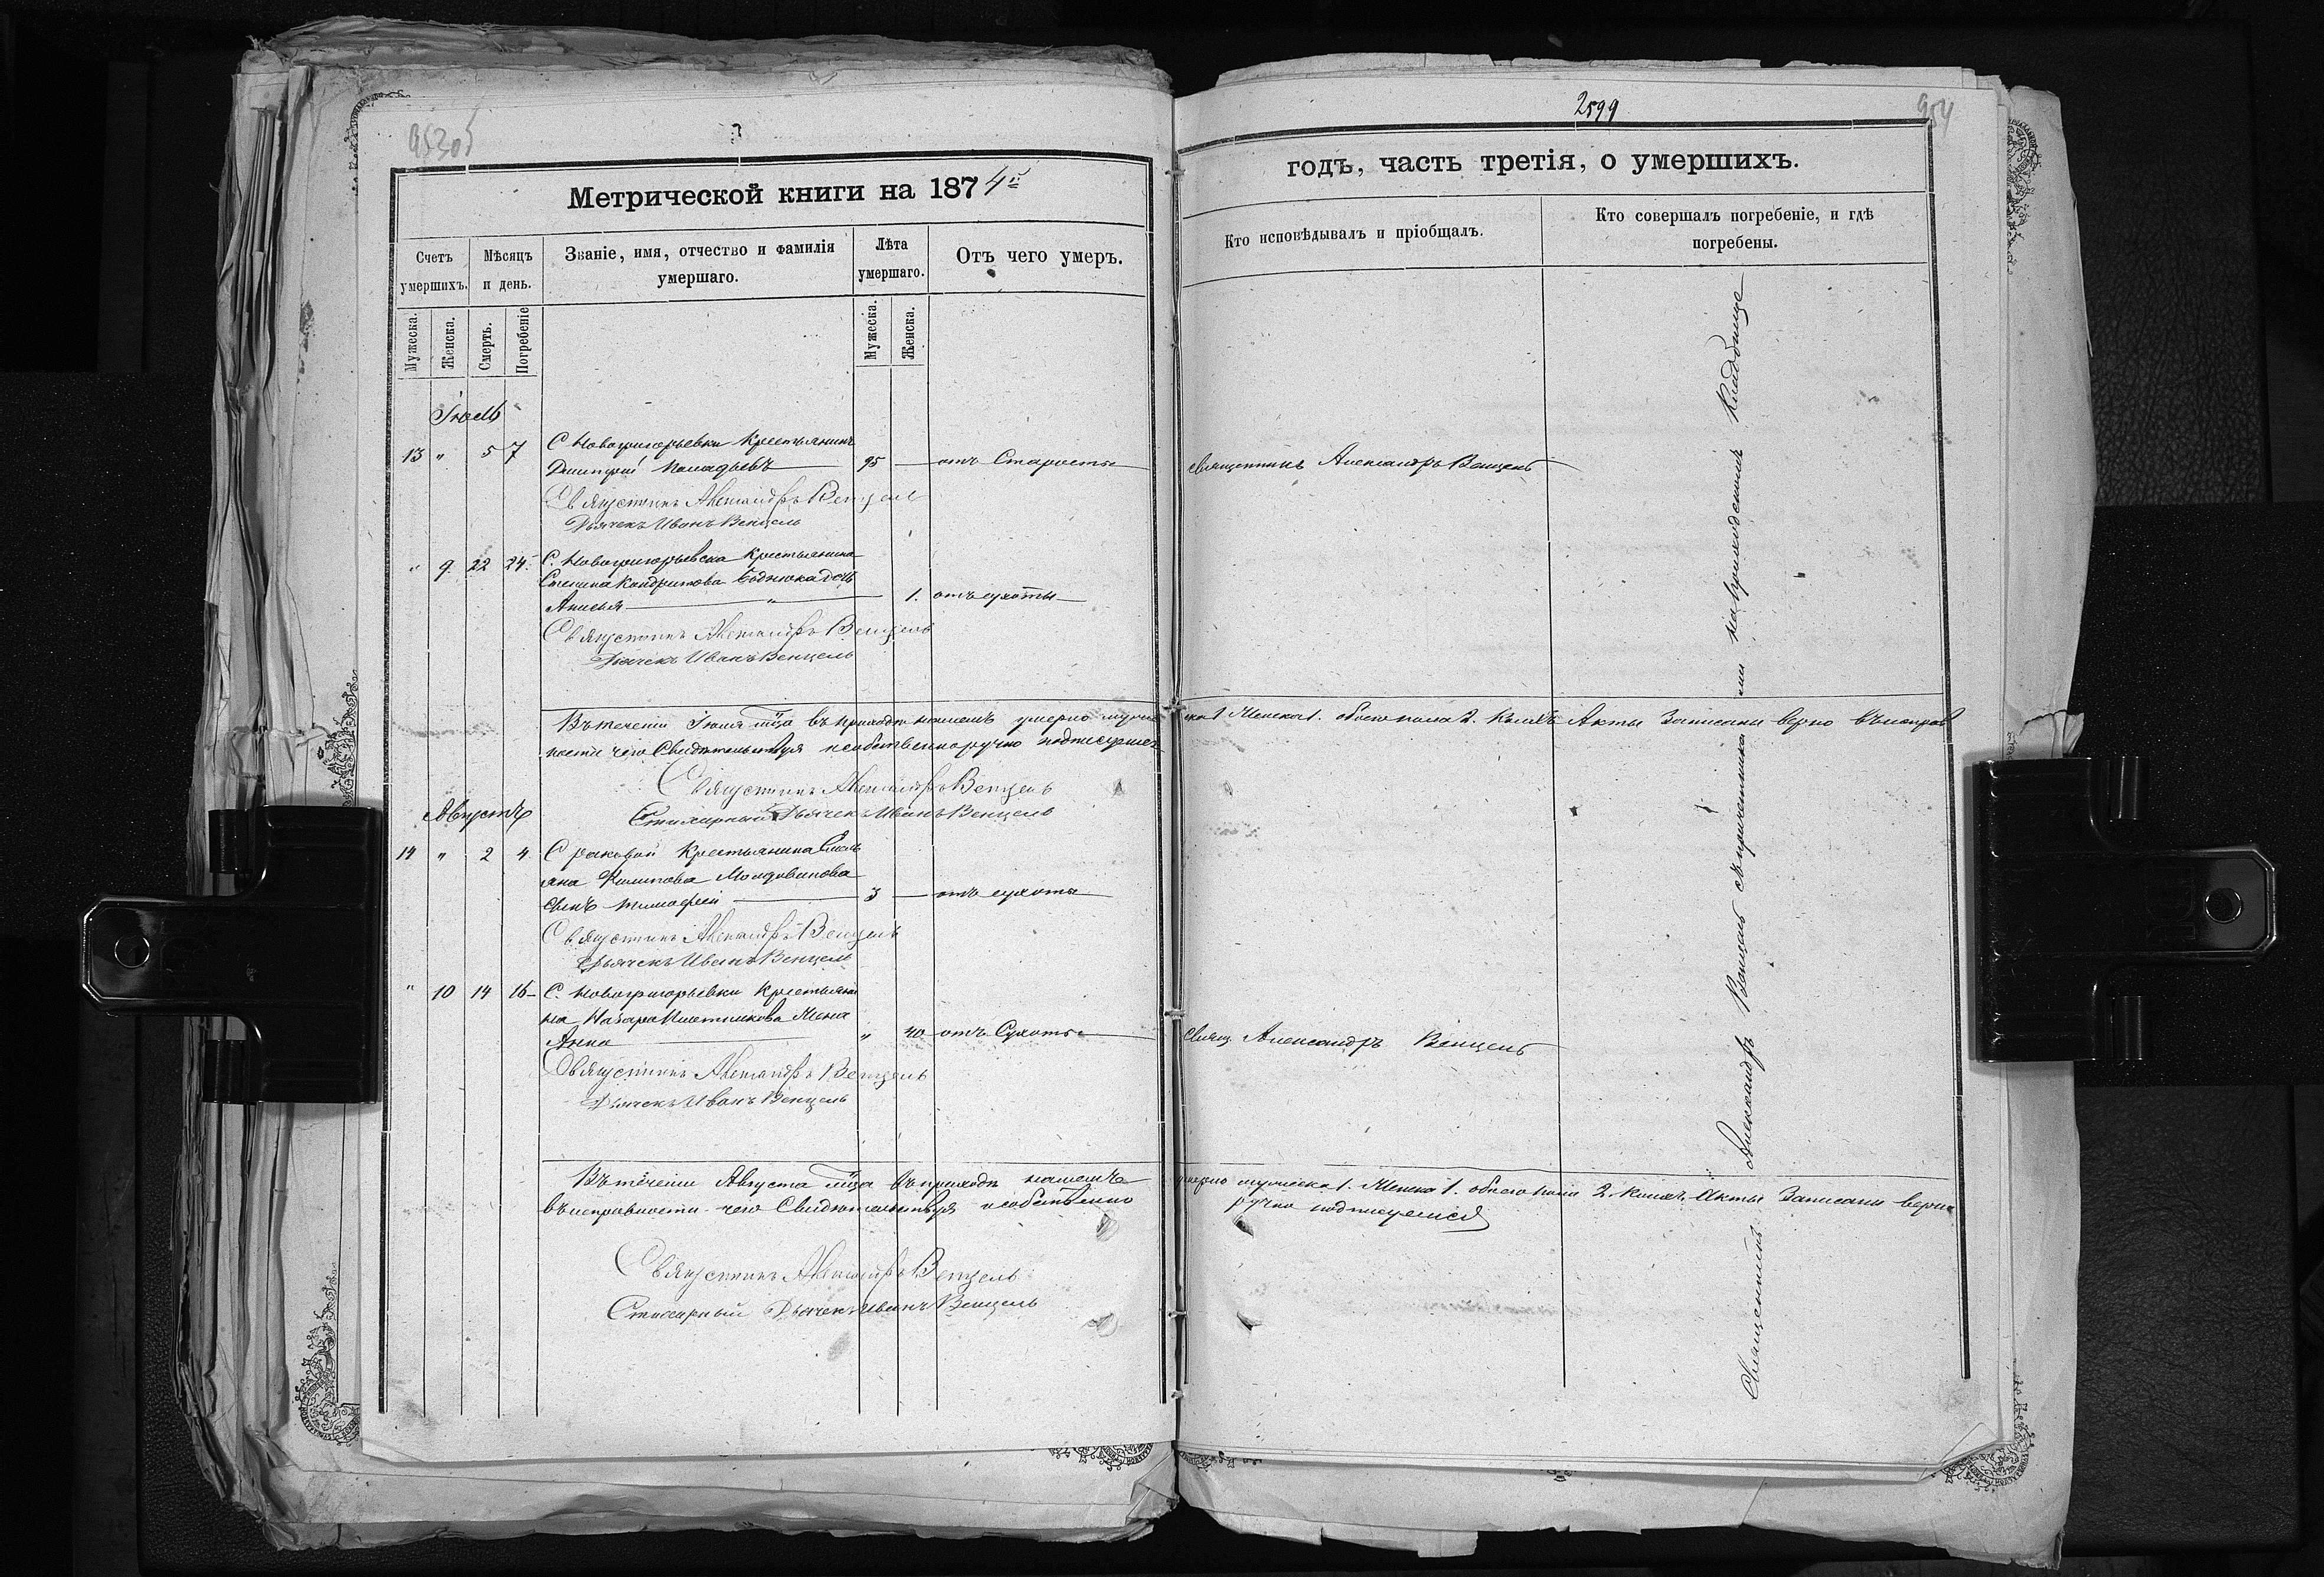 2599
954
Метрической книги на 1874й
годъ, часть третія, о умершихъ.
Счетъ умершихъ.
Мѣсяцъ и день.
Званіе, имя, отчество и фамилія умершаго.
Лѣта умершаго.
Отъ чего умеръ.
Кто исповѣдывалъ и пріобщалъ.
Кто совершалъ погребеніе, и гдѣ погребены.
Мужеска.
Женска.
Смерть.
Погребеніе
Мужеска.
Женска.
Іюль
13 " 5 7 С Новогригорьевки Крестьянинъ
Дмитрій 95 — отъ Старости Священникъ Александръ Венцель
Священникъ Александръ Венцель
Дьячекъ Иванъ Венцель
" 9 22 24 С. Новогригорьевска Крестьянина
Кондратова дочь
Анисья — " — 1. отъ сухоты
Священникъ Александръ Венцель
Дьячекъ Иванъ Венцель
Въ теченіи Іюля мца въ приходѣ нашемъ умерло мужеска 1 Женска 1. обоего пола 2. Акты Записаны верно въ исправ
ности чего Свидѣтельствуя и собственноручно подписуемся
Священникъ Александръ Венцель
Стихарный Дьячекъ Иванъ Венцель
Августъ
14 " 2 4 С Раковой Крестьянина Емель
яна Филипова Молдованова
сынъ Тимофей — 3 — отъ сухоты
Священникъ Александръ Венцель
Дьячекъ Иванъ Венцель
" 10 14 16 С. Новогригорьевки Крестьяни
на Назара Жена
Анна — " 40 отъ Сухоты Свящ. Александръ Венцель
Священникъ Александръ Венцель
Дьячекъ Иванъ Венцель
Въ теченіи Августа мца въ приходѣ нашемъ умерло мужеска 1. Женска 1. обоего пола 2. Акты Записаны верно
въ исправности чего Свидѣтельствуя и собственно ручно подписуемся
Священникъ Александръ Венцель
Стихарный Дьячекъ Иванъ Венцель
Священникъ Александръ Венцель съ причетниками на приходскомъ Кладбище